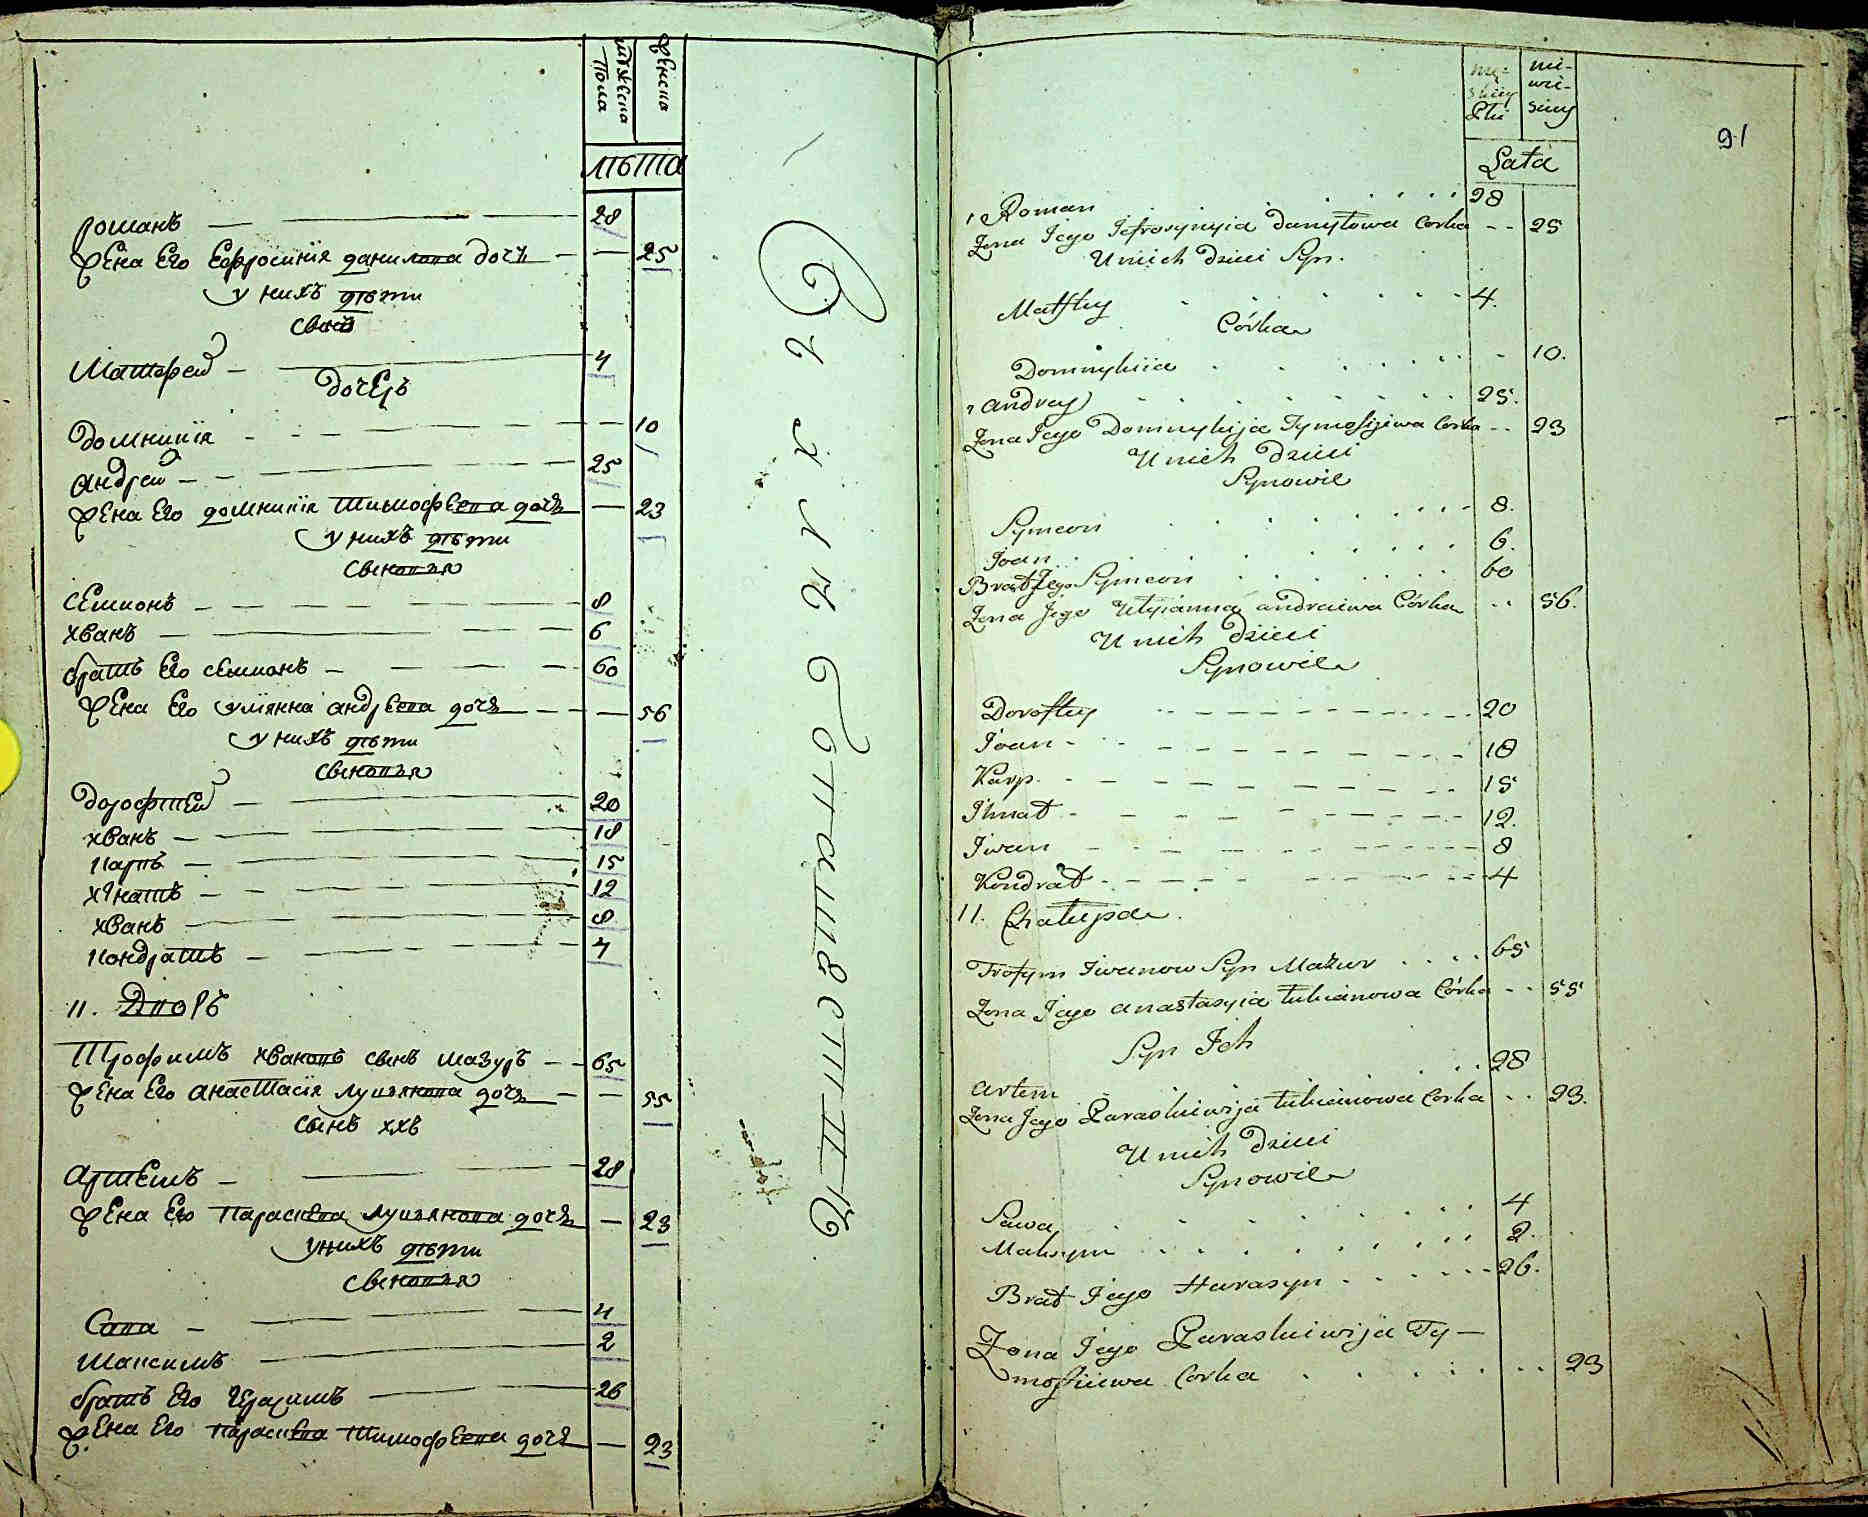 мужеска Пола
женска
лѣта
романъ 28
жена Его Ефросинія данилова дочь 25
у нихъ дѣти
сынъ
Матфей 4
дочерь
домникія 10
андрей 25
жена Его домникія тимофѣева дочь 23
у нихъ дѣти
сыновья
семионъ 8
хванъ 6
братъ Его семионъ 60
жена Его улиянна андрѣева дочь 56
у нихъ дѣти
сыновья
дорофтей 20
хванъ 18
карпъ 15
хгнатъ 12
хванъ 8
кондратъ 4
11. Дворъ
Трофимъ хвановъ сынъ мазуръ 65
жена Его анастасія лукіянова дочь 55
сынъ ххъ
артемъ 28
жена Его Параскева лукьянова дочь 23
у нихъ дѣти
сыновья
Сава 4
максимъ 2
братъ Его Герасимъ 26
жена Его Параскева тимофѣева дочь 23
91
Płci
Lata
Roman 28
Zona Jego Jefrosynyia Danyłowa Corka 25
U nich Dzieci Syn.
Matftey 4.
Córka
Domnykiia 10.
Andrey 25.
Zona Jego Domnykija Tymofijewa Corka 23
U nich Dzieci
Synowie
Symeon 8.
Joan 6.
Brat Jego Symeon 60
Zona Jego Ulyianna Andreiewa Córka 56.
U nich Dzieci
Synowie
Doroftey 20
Joan 18
Karp 15
Ihnat 12.
Iwan 8
Kondrat 4
11. Chałupa
Trofym Iwanow Syn Mazur 65
Zona Jego Anastasyia Łukianowa Córka 55
Syn Ich
Artem 28
Zona Jego Paraskiewija Łukianowa Corka 23.
U nich Dzieci
Synowie
Sawa 4
Maksym 2.
Brat Jego Harasym 26.
Zona Jego Paraskiewija Ty-
mofiiewa Corka 23